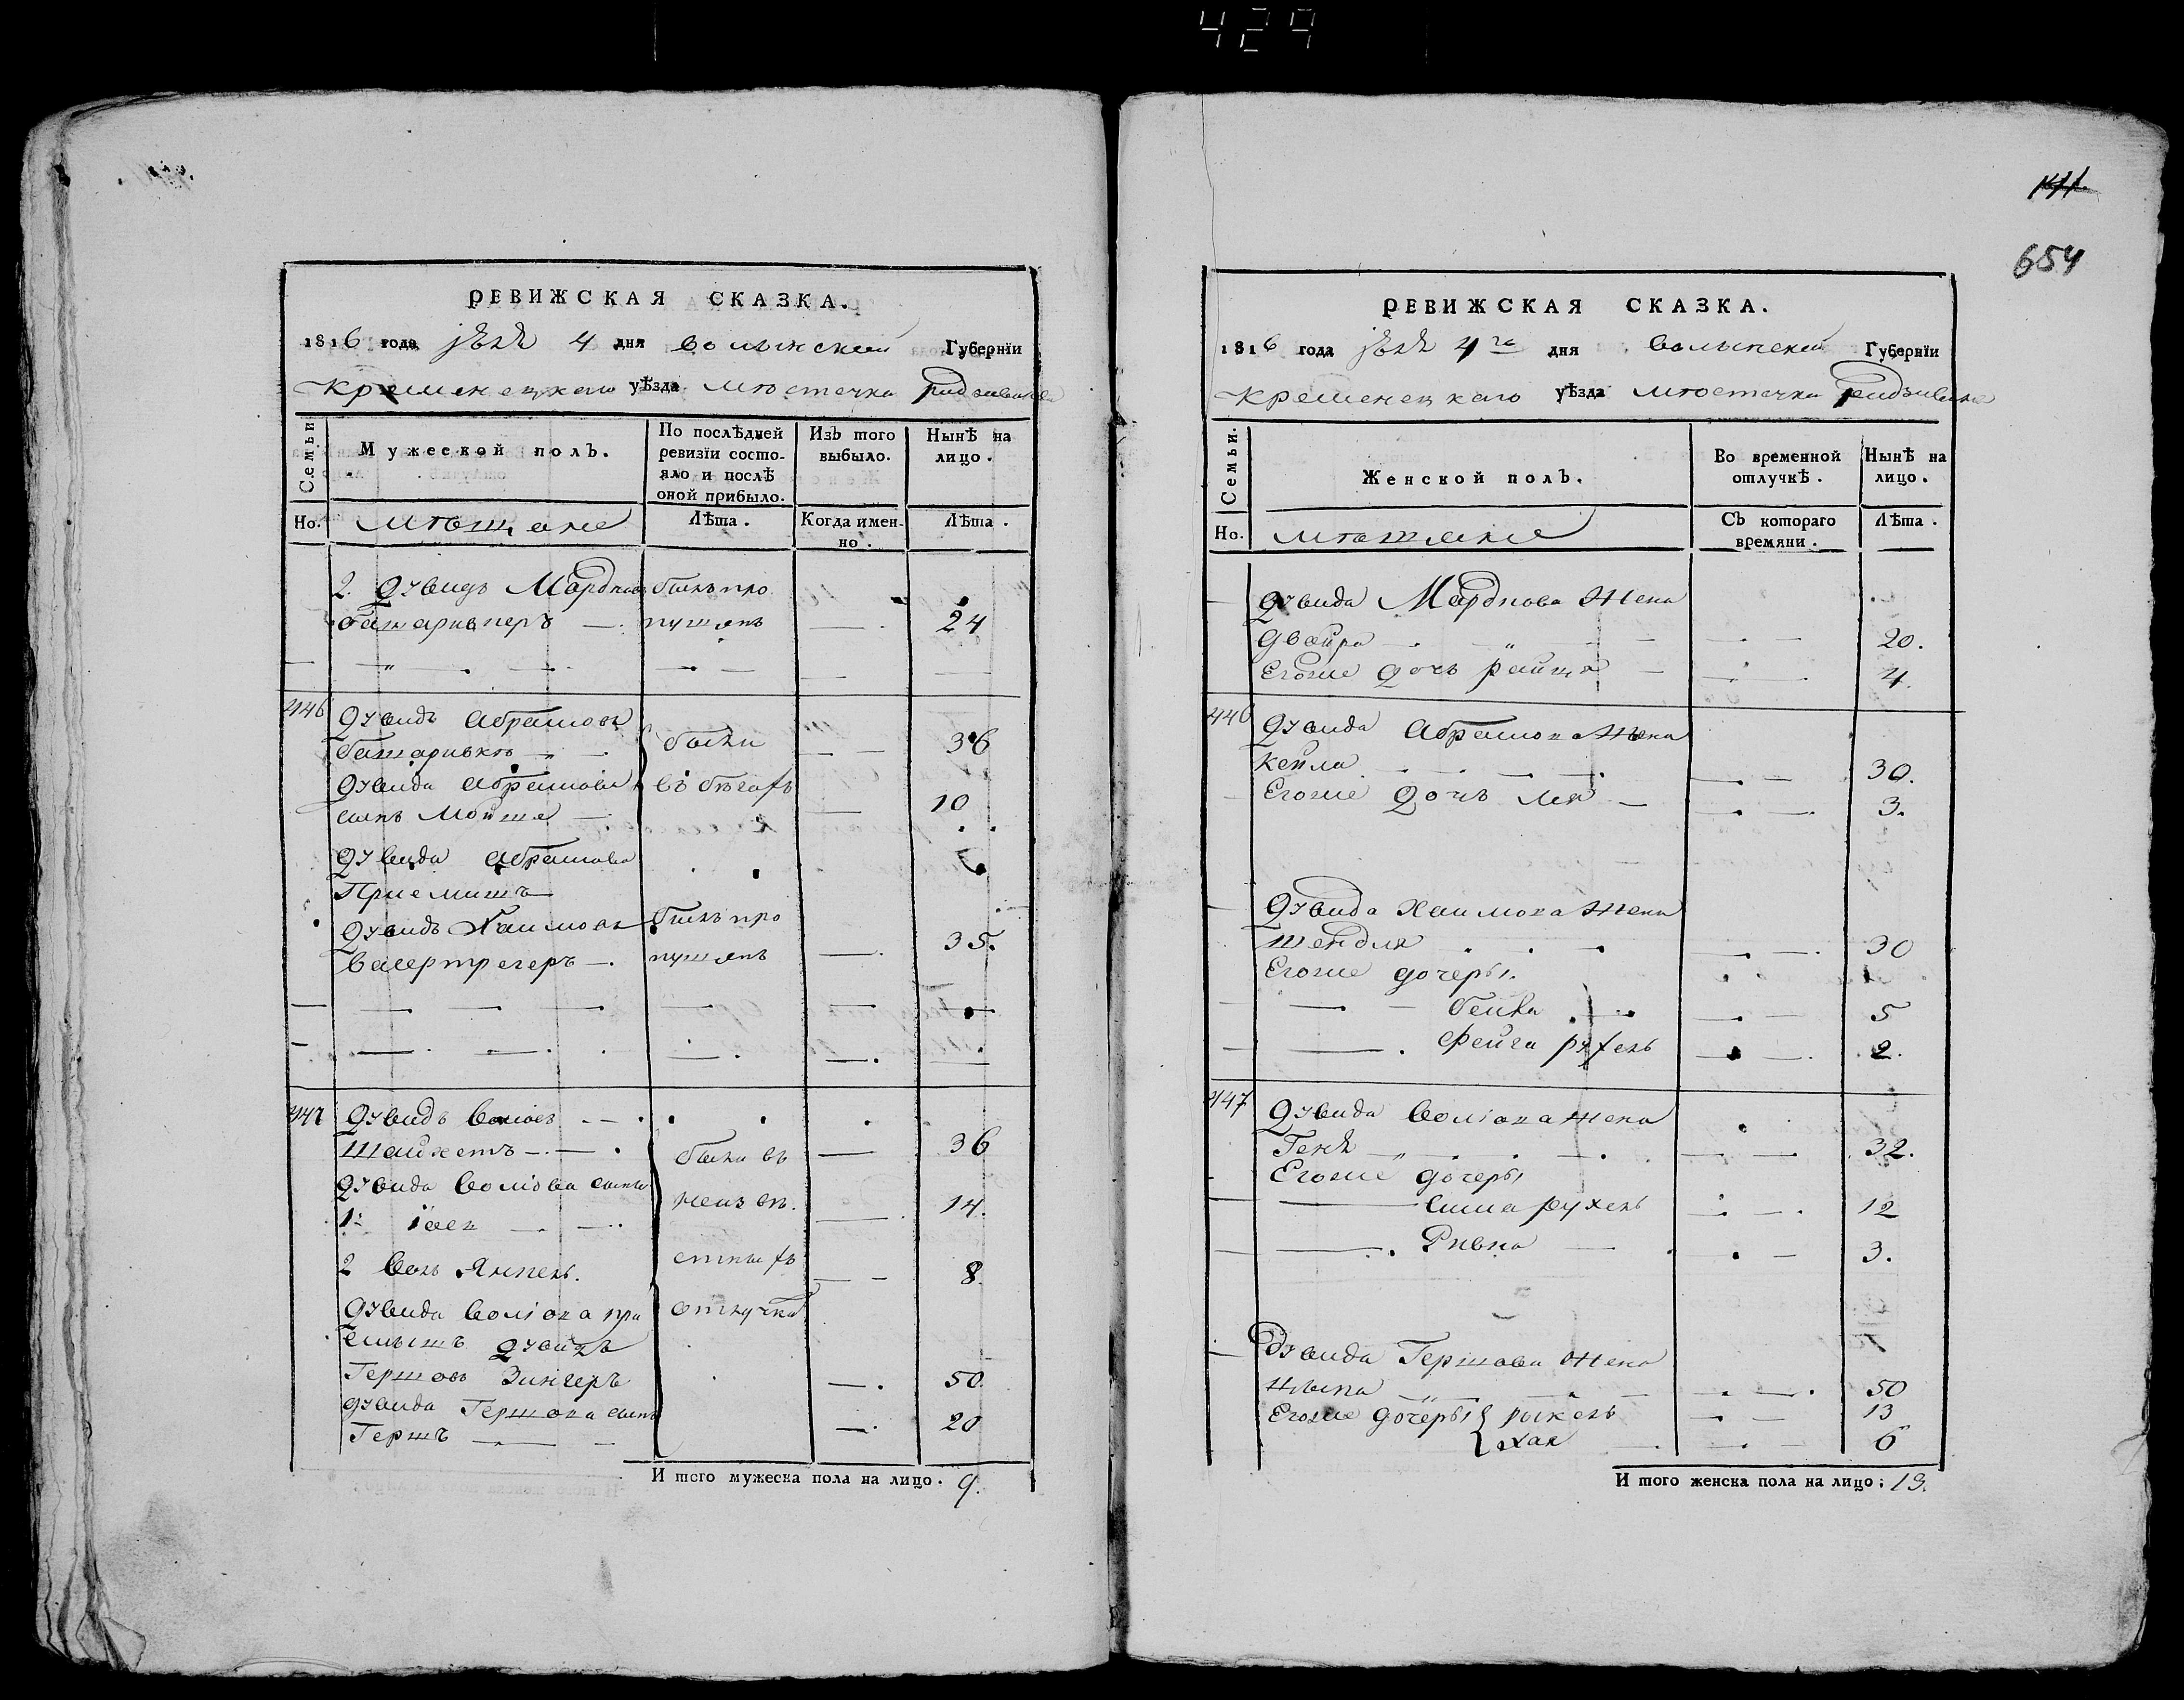 429
РЕВИЖСКАЯ СКАЗКА.
1816 года 4 дня Волынской Губернїи
Кременецкаго уѣзда мѣстечка Радзивилова
Семьи.
Мужеской полъ.
По послѣдней ревизїи состояло и послѣ оной прибыло.
Изъ того выбыло.
Нынѣ на лицо.
Но.
мѣщане
Лѣта.
Когда именно.
Лѣта.
2. Дувидъ Мордков былъ про
пущенъ 24
446 Дувидъ Абрамовъ
были 36
Дувида Абрамова въ бѣгахъ
сынъ Мойше 10
Дувида Абрамова
Приемишъ
Дувидъ Хаимовъ былъ про
Васертрегеръ пущенъ 35.
447 Дувидъ Волiовъ
были въ 36
Дувида Волiова сыны
1: неизвѣ. 14.
2 Волъ Янкель. стныхъ 8.
Дувида Волiова при отлучка
емышъ Дувидъ
Гершовъ Зингеръ 50.
Дувида Гершова сынъ
Гершъ 20
И того мужеска пола на лицо. 9.
171.
654
РЕВИЖСКАЯ СКАЗКА.
1816 года 4го дня Волынской Губернїи
Кременецкаго уѣзда мѣстечка Радзивилова
Семьи.
Женской полъ.
Во временной отлучкѣ.
Нынѣ на лицо.
Но.
мѣщане
Съ котораго времяни.
Лѣта.
Дувида Мордкова жена
Двойра 20.
Егоже дочь Райця 4.
446 Дувида Абрамова жена
Кейла 30.
Егоже дочь Лея 3.
Дувида Хаимова жена
Шендля 30
Егоже дочеры.
Бейла 5
Фейга Рухель 2.
447 Дувида Волiова жена
Геня 32.
Егоже дочеры
Сима Рухель 12
Ривка 3.
Дувида Гершова жена
50
Егоже дочеры { Рыкель 13
Хая 6
И того женска пола на лицо: 13.